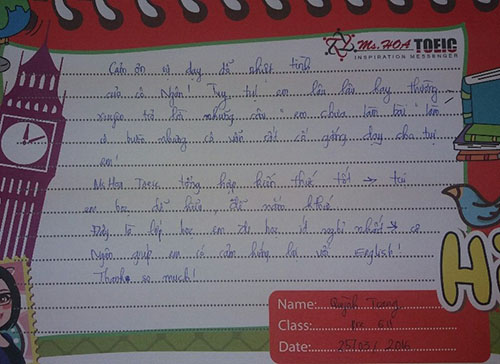 Ms. HOA TOEIC
INSPIRATION MESSENGER
Cảm ơn sự dạy dỗ nhiệt tình
của cô Ngân! Tuy tụi em hay thường
xuyên trả bài những câu "em chưa làm bài" làm
cô buồn nhưng cô vẫn rất cố gắng dạy cho tụi
em!
Ms Hoa Toeic tổng hợp kiến thức tốt → tụi
em học dễ hiểu, dễ nắm
Đây là lớp học em đi học ít nghỉ nhất → cô
Ngân giúp em có cảm hứng lại với English!
Thanks so much!
Hi
Name: Quỳnh Trang
Class:
Date: 25/03/2016